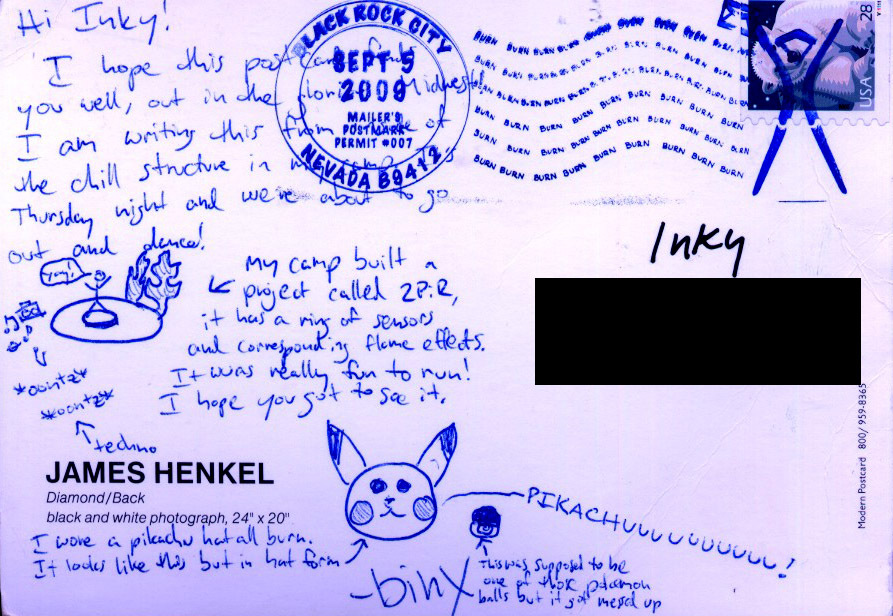 Hi Inky!
I hope this postcard finds
you well, out in the glorious Midwest!
I am writing this from inside of
the chill structure in my camp. It's
Thursday night and we're about to go
out and dance!
BLACK ROCK CITY
SEPT 5
2009
MAILER'S
POSTMARK
PERMIT #007
NEVADA 89412
BURN BURN BURN BURN BURN BURN BURN BURN BURN
BURN BURN BURN BURN BURN BURN BURN BURN BURN
BURN BURN BURN BURN BURN BURN BURN BURN BURN
BURN BURN BURN BURN BURN BURN BURN BURN BURN
BURN BURN BURN BURN BURN BURN BURN BURN BURN
BURN BURN BURN BURN BURN BURN BURN BURN BURN
USA 28
Inky
Yay!
My camp built a
project called 2PiR,
it has a ring of sensors
and corresponding flame effects.
It was really fun to run!
I hope you got to see it.
*oontz*
*oontz*
techno
JAMES HENKEL
Diamond/Back
black and white photograph, 24" x 20"
I wore a pikachu hat all burn.
It looks like this but in hat form
PIKACHUUUUUUUUUUU!
This was supposed to be
one of those pokemon
balls but it got messed up
-binx
Modern Postcard 800/959-8365